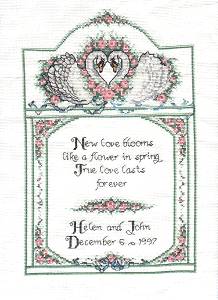 New love blooms
like a flower in spring
True love lasts
forever
Helen and John
December 6 1997